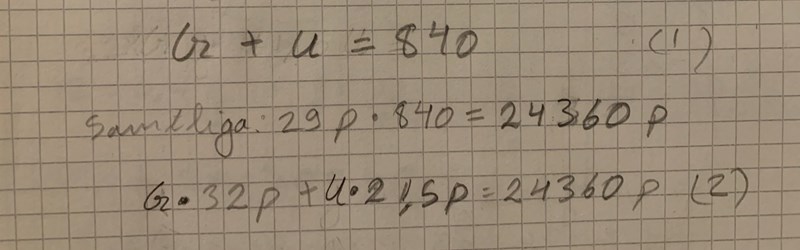 G + U = 840 (1)
Samtliga: 29 p · 840 = 24360 p
G · 32 p + U · 21,5 p = 24360 p (2)